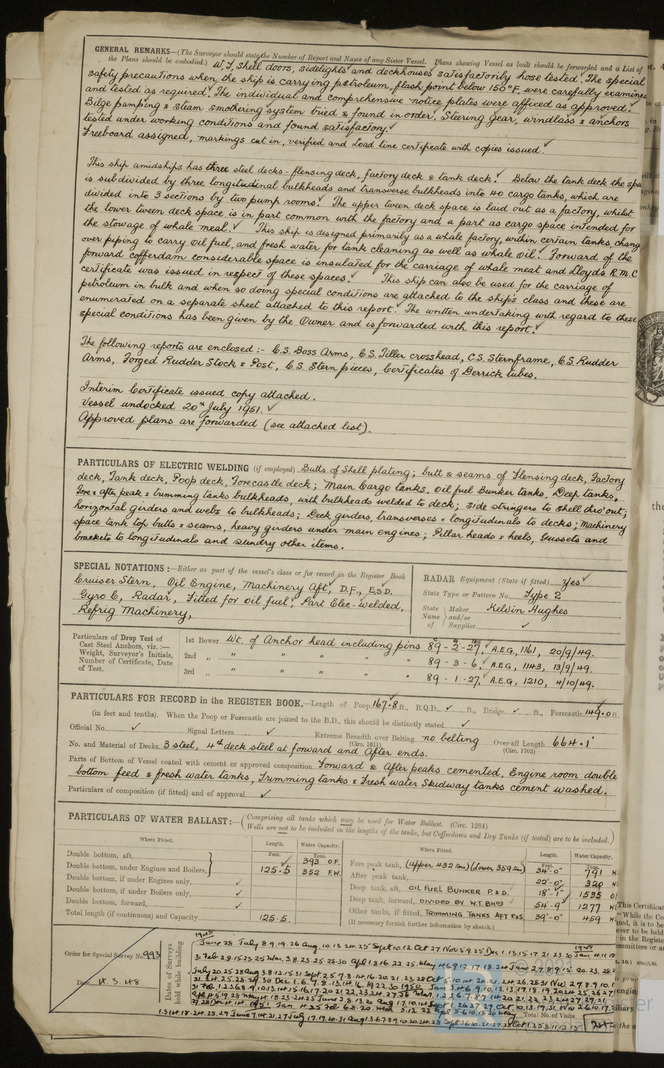 GENERAL REMARKS—(The Surveyor should state the Number of Report and Name of any Sister Vessel. Plans showing Vessel as built should be forwarded and a List of
the Plans should be embodied.) W.T. Shell doors, sidelights and deckhouses satisfactorily hose tested. The special
safety precautions when the ship is carrying petroleum, flash point below 150°F. were carefully examined
and tested as required. The individual and comprehensive notice plates were affixed as approved.
Bilge pumping & steam smothering system tried & found in order. Steering gear, windlass & anchors
tested under working conditions and found satisfactory.
Freeboard assigned, markings cut in, verified and Load line certificate with copies issued.
This ship amidships has three steel decks - flensing deck, factory deck & tank deck. Below the tank deck the spa
is subdivided by three longitudinal bulkheads and transverse bulkheads into 40 cargo tanks, which are
divided into 3 sections by two pump rooms. The upper tween deck space is laid out as a factory, whilst
the lower tween deck space is in part common with the factory and a part as cargo space intended for
the stowage of whale meal. This ship is designed primarily as a whale factory, within certain tanks, chang
over piping to carry oil fuel, and fresh water for tank cleaning as well as whale oil. Forward of the
forward cofferdam considerable space is insulated for the carriage of whale meat and Lloyds R.M.C
certificate was issued in respect of these spaces. This ship can also be used for the carriage of
petroleum in bulk and when so doing special conditions are attached to the ship's class and these are
enumerated on a separate sheet attached to this report. The written undertaking with regard to these
special conditions has been given by the Owner and is forwarded with this report.
The following reports are enclosed :- C.S. Boss Arms, C.S. Tiller crosshead, C.S. Sternframe, C.S. Rudder
Arms, Forged Rudder Stock & Post, C.S. Stern pieces, Certificates of Derrick tubes.
Interim Certificate issued copy attached.
Vessel undocked 20th July 1951.
Approved plans are forwarded (see attached list).
PARTICULARS OF ELECTRIC WELDING (if employed) Butts of Shell plating; butt & seams of Flensing deck, Factory
deck, Tank deck, Poop deck, Forecastle deck; Main Cargo tanks, Oil fuel Bunker tanks, Deep tanks,
Fore & after peak & trimming tanks bulkheads, with bulkheads welded to deck; side stringers to shell thro'out;
horizontal girders and webs to bulkheads; Deck girders, transverses & longitudinals to decks; Machinery
space tank top butts & seams, heavy girders under main engines; Pillar heads & heels, Gussets and
brackets to longitudinals and sundry other items.
SPECIAL NOTATIONS:—Either as part of the vessel's class or for record in the Register Book
Cruiser Stern, Oil Engine, Machinery Aft, D.F., E.S.D.
Gyro C, Radar, Fitted for oil fuel. Part Elec-Welded,
Refrig Machinery,
RADAR Equipment (State if fitted) Yes
State Type or Pattern No. Type 2
State Name Maker and/or of Supplier Kelvin Hughes
Particulars of Drop Test of Cast Steel Anchors, viz.:— Weight, Surveyor's Initials, Number of Certificate, Date of Test.
1st Bower Wt. of Anchor head including pins 89 - 2 - 27. A.E.G, 1161, 20/9/49.
2nd " " " " " 89 - 3 - 6. A.E.G, 1143, 13/9/49.
3rd " " " " " 89 - 1 - 27. A.E.G, 1210, 4/10/49.
PARTICULARS FOR RECORD in the REGISTER BOOK.—Length of Poop 167.8 ft., R.Q.D. ft., Bridge ft., Forecastle 149.0 ft.
(in feet and tenths). When the Poop or Forecastle are joined to the B.D., this should be distinctly stated.
Official No. Signal Letters Extreme Breadth over Belting no belting Over-all Length 664.1'
(Circ. 1611) (Circ. 1703)
No. and Material of Decks 3 steel, 4th deck steel at forward and After ends.
Parts of Bottom of Vessel coated with cement or approved composition Forward & After peaks cemented, Engine room double
bottom feed & fresh water tanks, Trimming tanks & Fresh water Skidway tanks cement washed.
Particulars of composition (if fitted) and of approval
PARTICULARS OF WATER BALLAST:— (Comprising all tanks which may be used for Water Ballast. (Circ. 1284)
Wells are not to be included in the lengths of the tanks, but Cofferdams and Dry Tanks (if tested) are to be included.)
Where Fitted. Length. Water Capacity. Where Fitted. Length. Water Capacity.
Feet. Tons. Feet. Tons.
Double bottom, aft, 393 O.F.
Double bottom, under Engines and Boilers, 125.5 352 F.W.
Double bottom, if under Engines only,
Double bottom, if under Boilers only,
Double bottom, forward,
Total length (if continuous) and Capacity 125.5.
Fore peak tank, (upper 432 tons) (lower 359 tons) 34'-0" 791
After peak tank, 22'-0" 320
Deep tank, aft, OIL FUEL BUNKER P.&S. 18'-1" 1535
Deep tank, forward, DIVIDED BY W.T. BHDS 54'-9" 1277
Other tanks, if fitted, TRIMMING TANKS AFT P&S. 39'-0" 459
(If necessary furnish further information by sketch).
Order for Special Survey No. 993
Date 18.3.48
Dates of Surveys held while building
Total No. of Visits